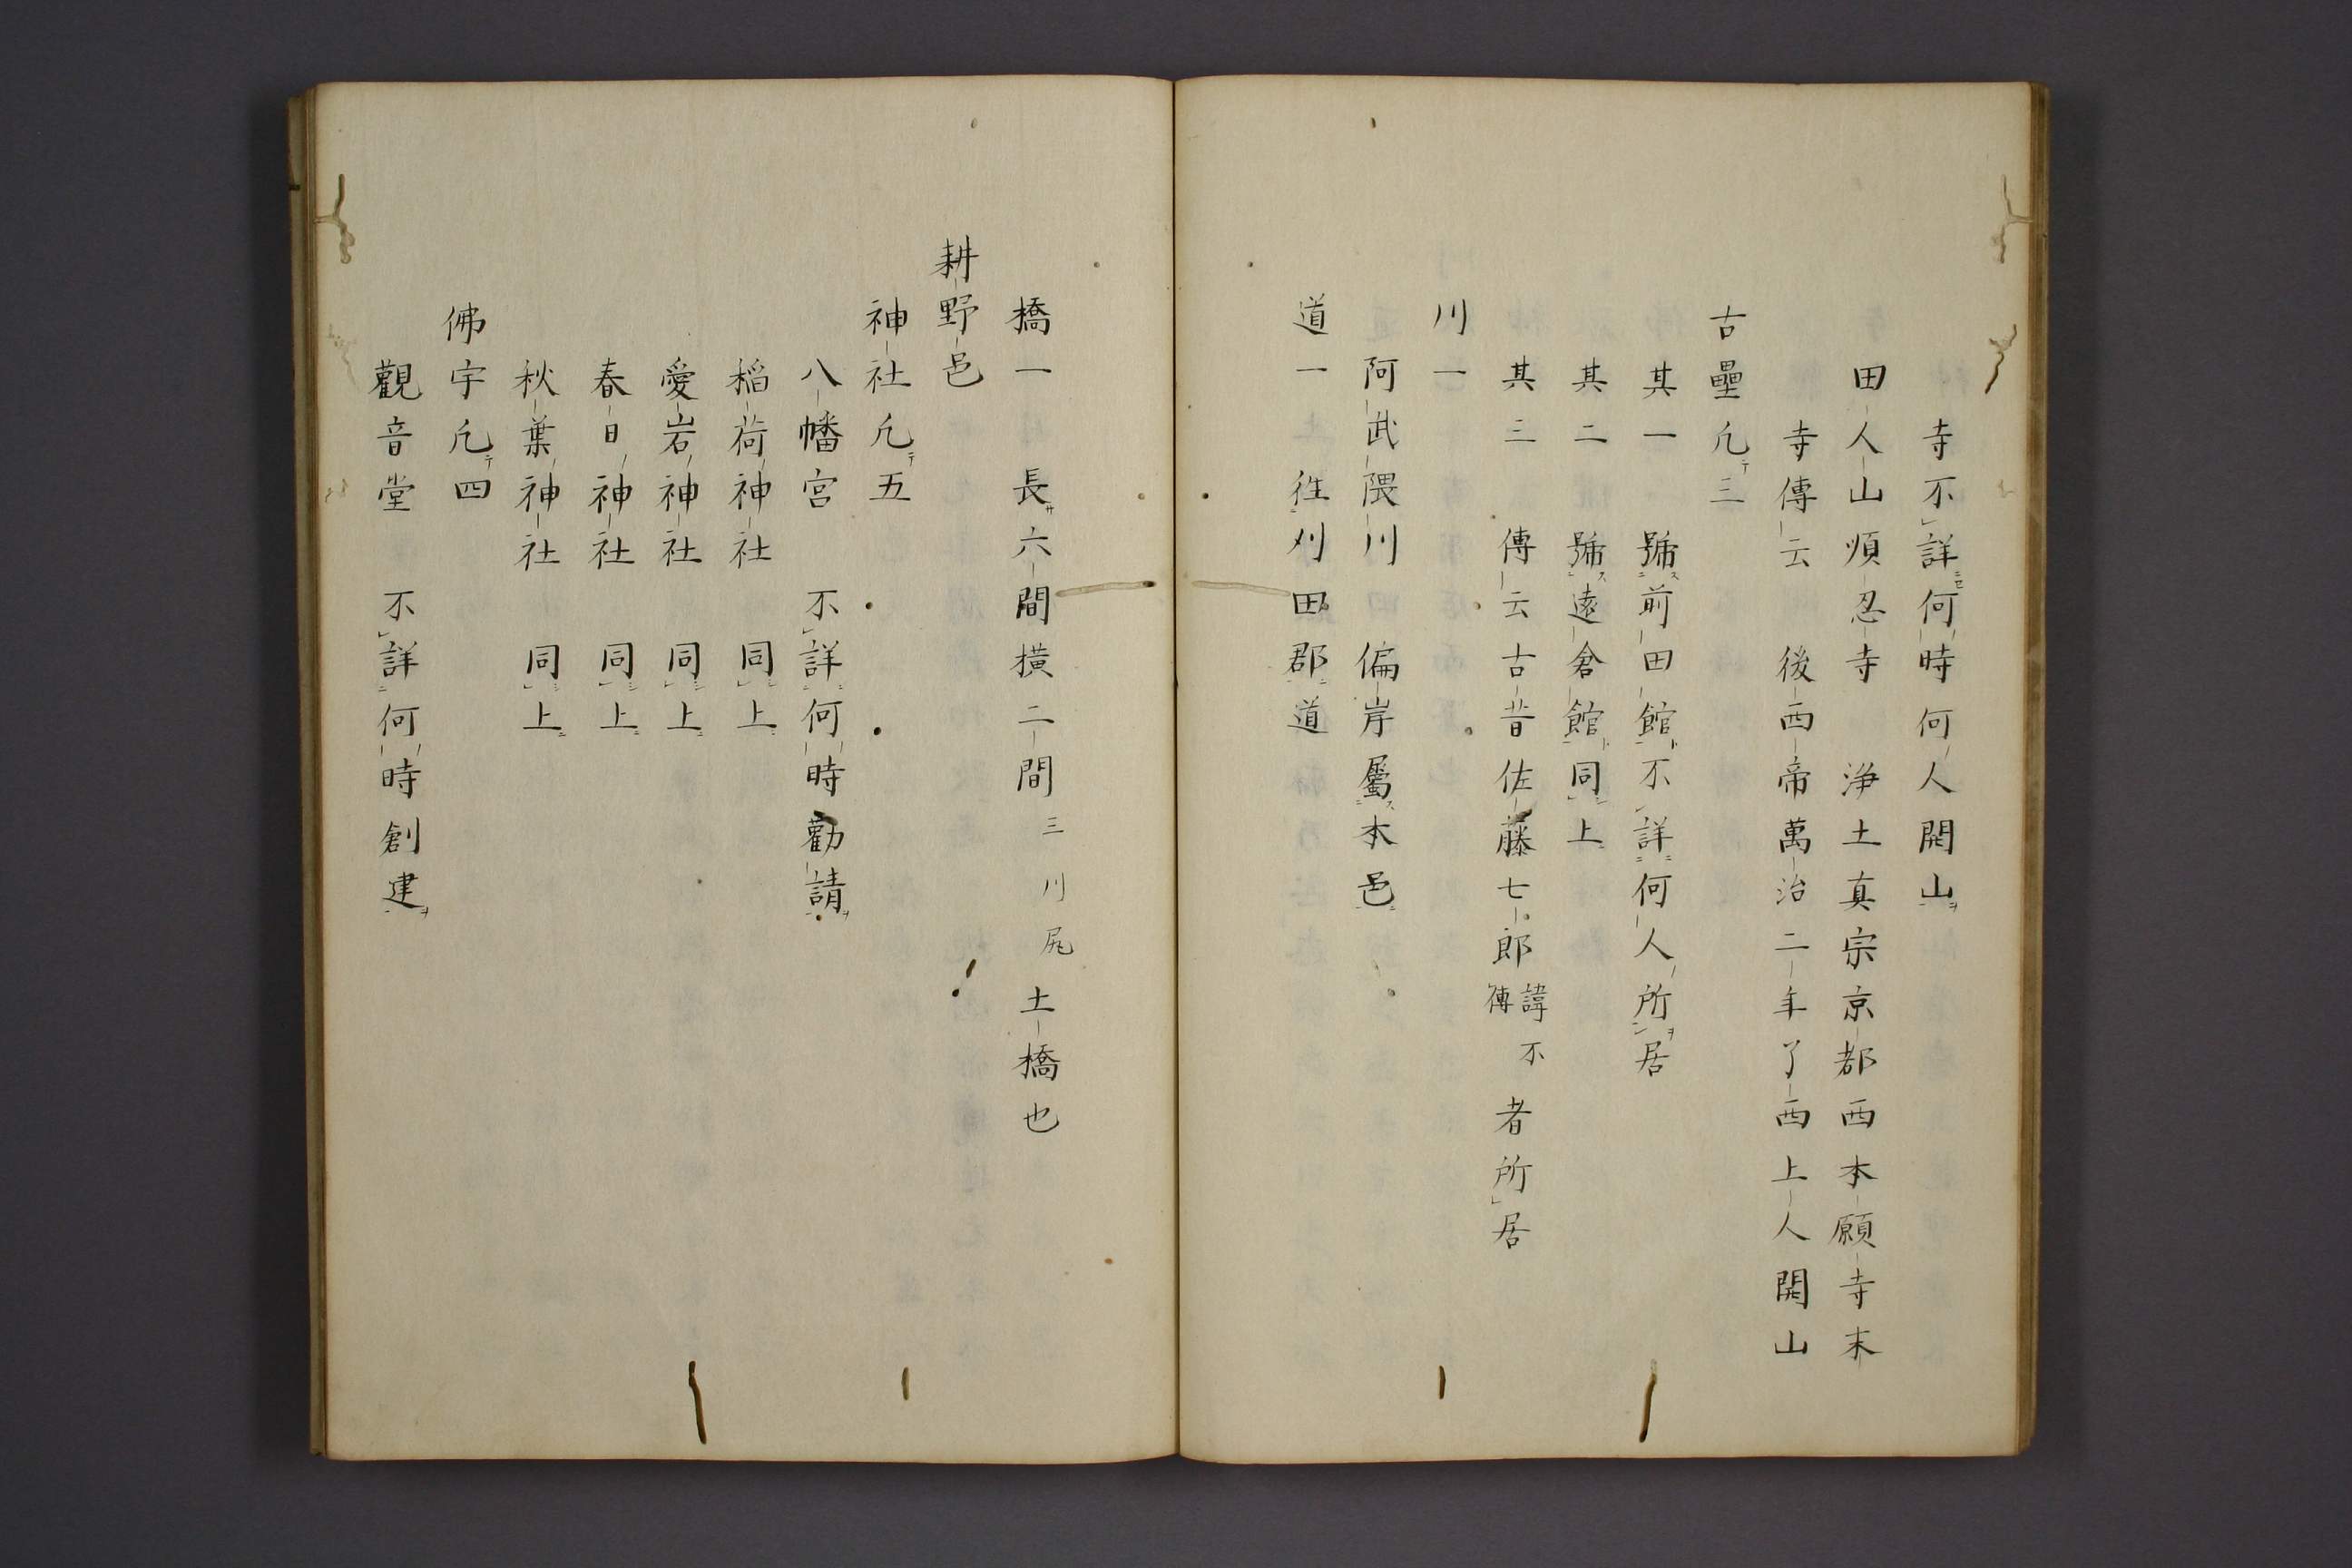 寺不詳何時何人開山
田人山順忍寺 浄土真宗京都西本願寺末
寺傳云 後西帝萬治二年了西上人開山
古壘凢三
其一 號前田館不詳何人所居
其二 號遠倉館同上
其三 傳云古昔佐藤七郎諱不傳者所居
川一
阿武隈川 偏岸屬本邑
道一 徃刈田郡道
橋一 長六間横二間三川尻土橋也
耕野邑
神社凢五
八幡宮 不詳何時勸請
稲荷神社 同上
愛岩神社 同上
春日神社 同上
秋葉神社 同上
佛宇凢四
觀音堂 不詳何時創建